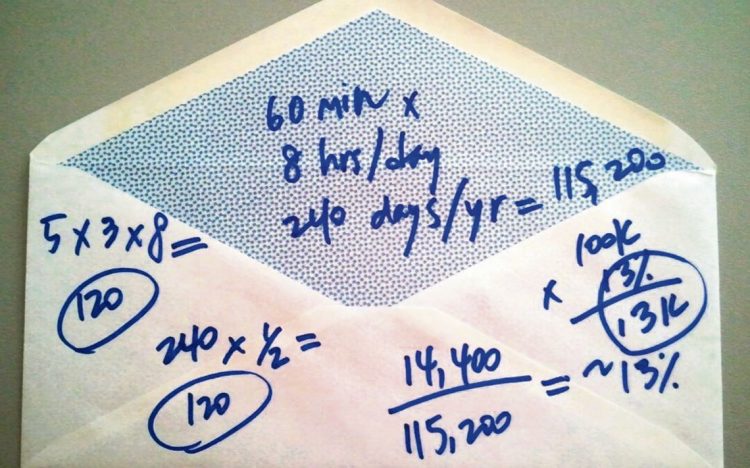 60 min x
8 hrs/day
240 days/yr = 115,200
5 x 3 x 8 =
120
240 x 1/2 =
120
100K
x 13%
13K
14,400
115,200
= ~13%